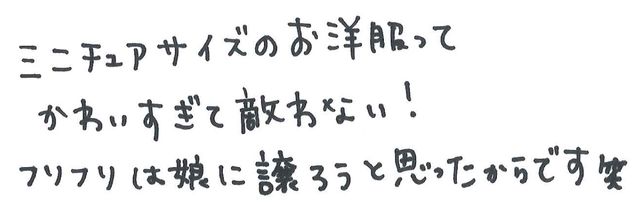 ミニチュアサイズのお洋服って
かわいすぎて敵わない！
フリフリは娘に譲ろうと思ったからです笑